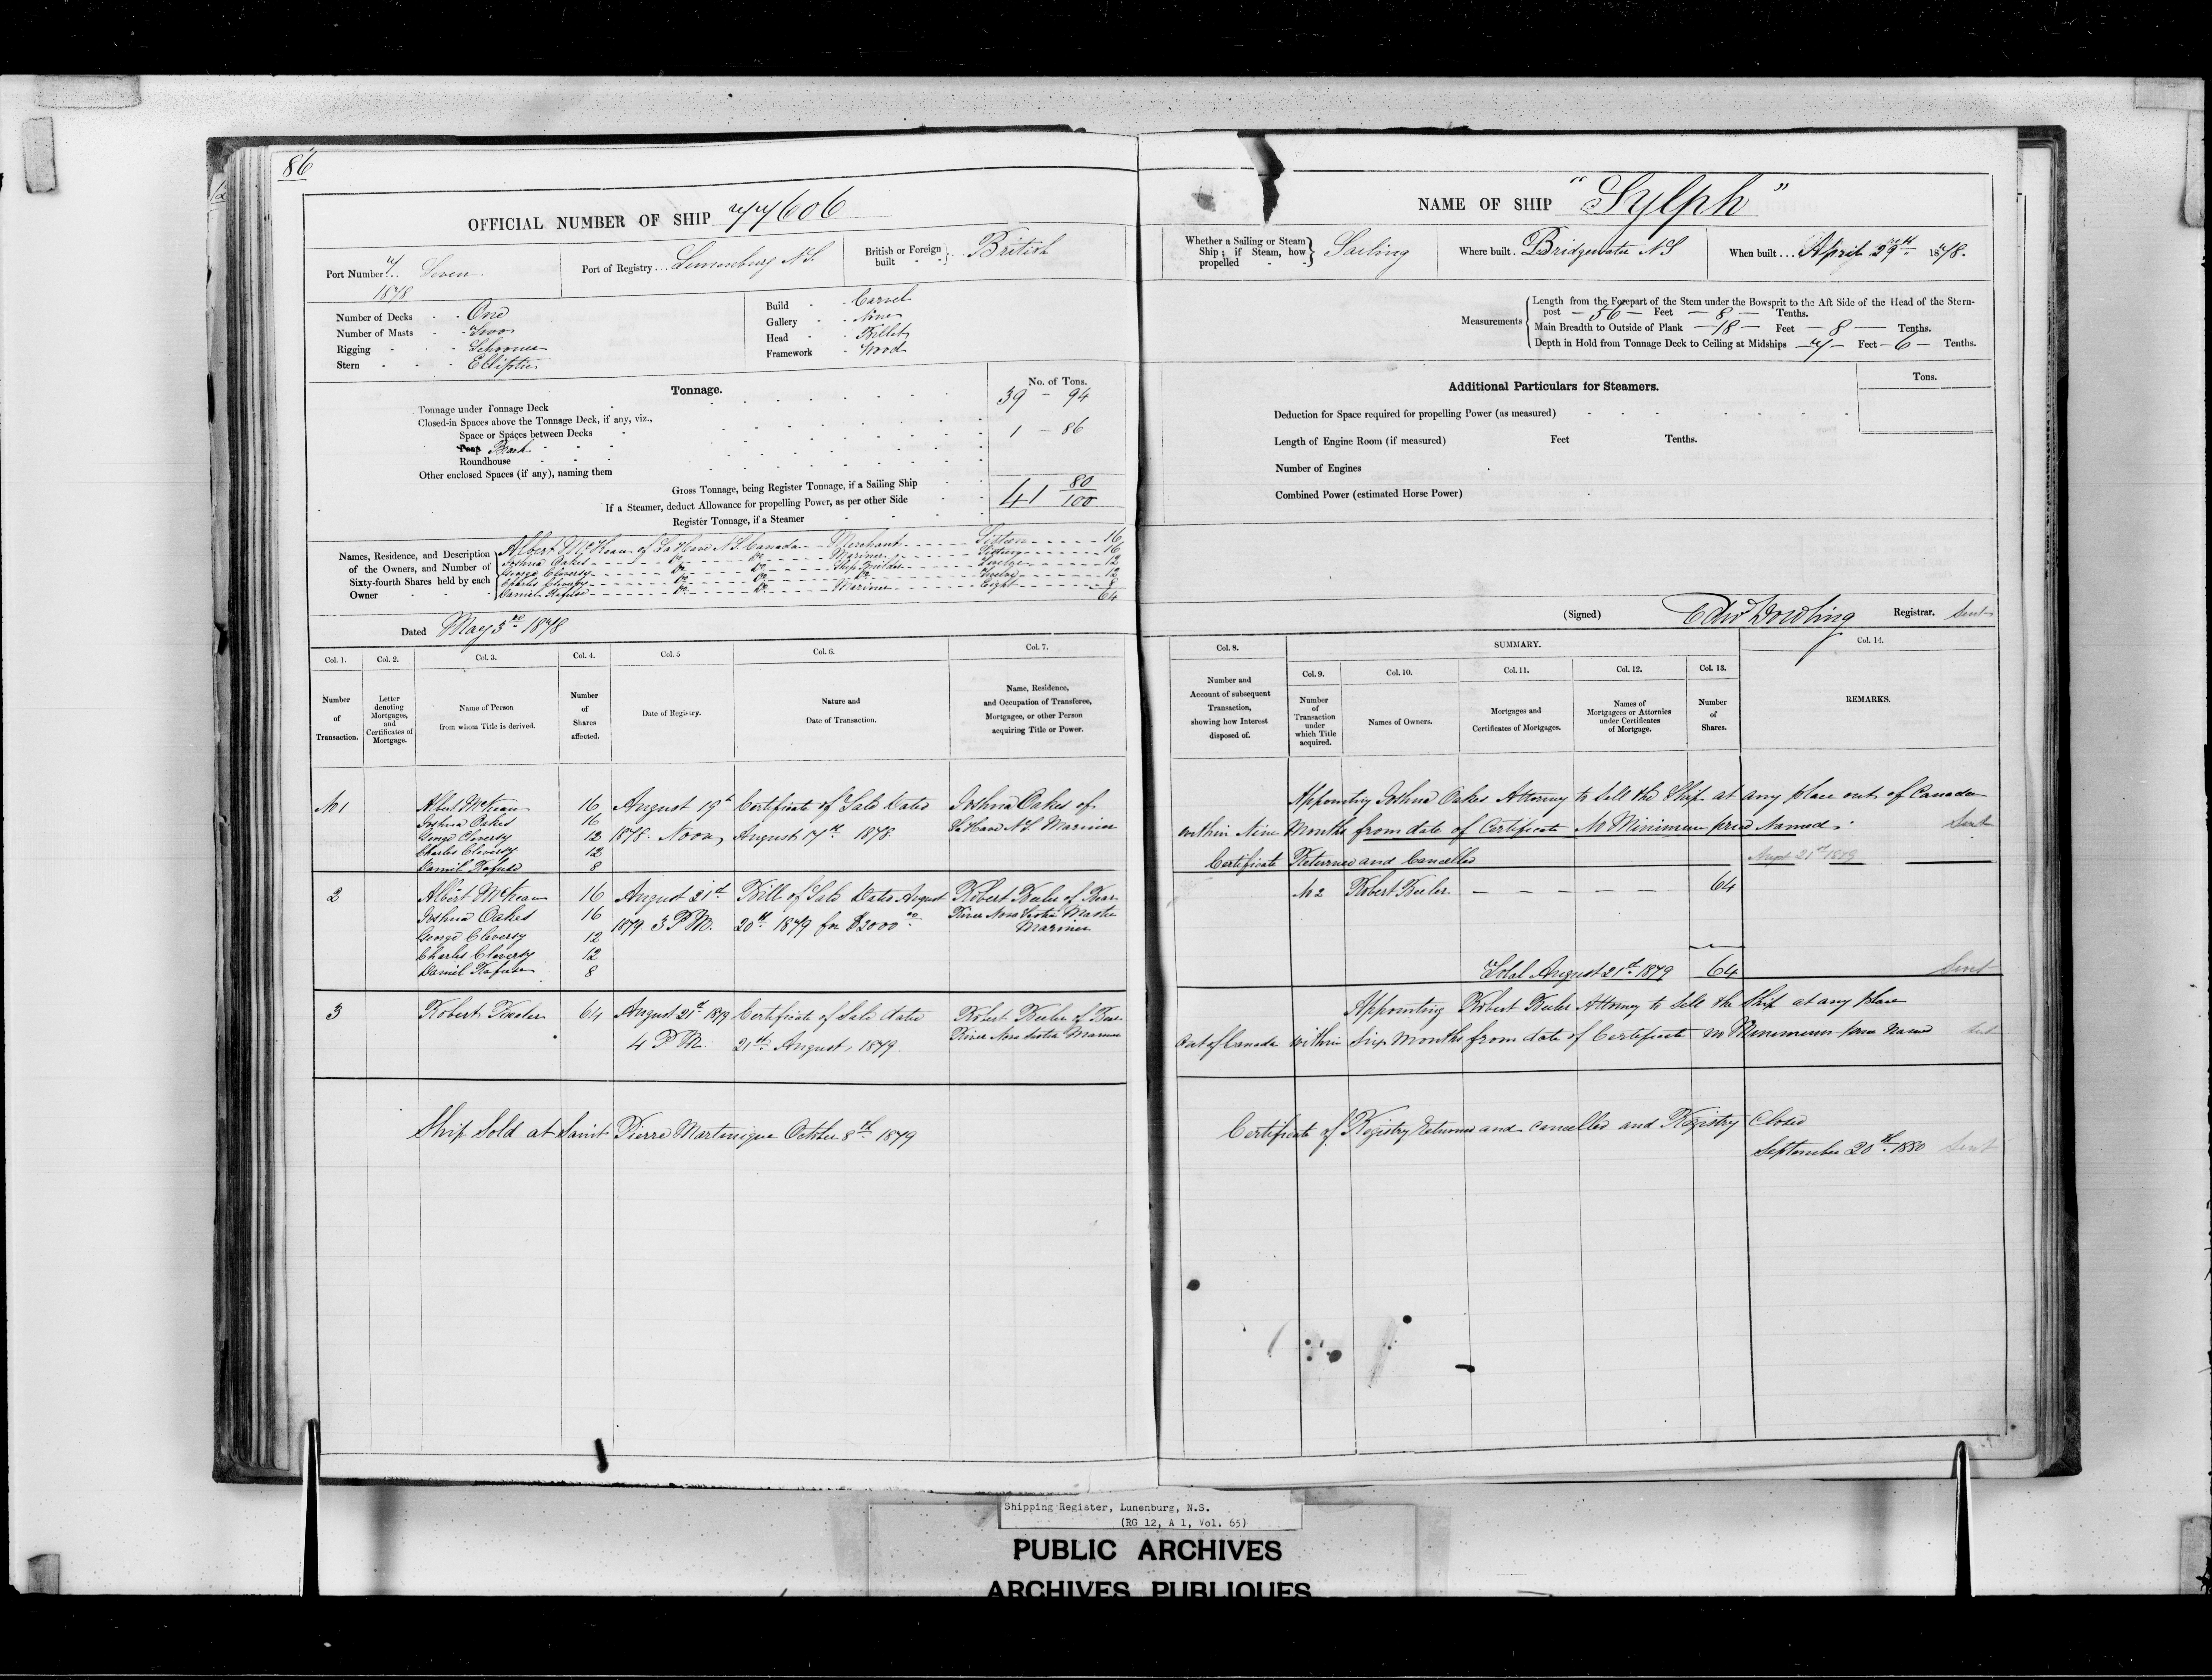 86
OFFICIAL NUMBER OF SHIP 77606
Port Number 7 Seven
1878
Port of Registry Lunenburg N.S.
British or Foreign built British
Number of Decks One
Number of Masts Two
Rigging Schooner
Stern Elliptic
Build Carvel
Gallery None
Head Billet
Framework Wood
Tonnage.
No. of Tons.
Tonnage under Tonnage Deck 39 - 94
Closed-in Spaces above the Tonnage Deck, if any, viz.,
Space or Spaces between Decks
Poop Break 1 - 86
Roundhouse
Other enclosed Spaces (if any), naming them
Gross Tonnage, being Register Tonnage, if a Sailing Ship 41 80/100
If a Steamer, deduct Allowance for propelling Power, as per other Side
Register Tonnage, if a Steamer
Names, Residence, and Description of the Owners, and Number of Sixty-fourth Shares held by each Owner
Albert McKean of LaHave N.S. Canada Merchant Sixteen 16
Joshua Oakes Do Do Mariner Sixteen 16
George Cleversy Do Do Ship Builder Twelve 12
Charles Cleversy Do Do Do Twelve 12
Daniel Rafuse Do Do Mariner Eight 8
64
Dated May 3rd 1878
Col. 1. Col. 2. Col. 3. Col. 4. Col. 5 Col. 6. Col. 7.
Number of Transaction.
Letter denoting Mortgages, and Certificates of Mortgage.
Name of Person from whom Title is derived.
Number of Shares affected.
Date of Registry.
Nature and Date of Transaction.
Name, Residence, and Occupation of Transferee, Mortgagee, or other Person acquiring Title or Power.
No 1 Albert McKean 16 August 19th Certificate of Sale Dated Joshua Oakes of
Joshua Oakes 16 1878 Noon August 17th 1878 LaHave N.S. Mariner
George Cleversy 12
Charles Cleversy 12
Daniel Rafuse 8
2 Albert McKean 16 August 21st Bill of Sale Dated August Robert Keeler of Bear
Joshua Oakes 16 1879 3 P.M. 20th 1879 for $2000 00 River Nova Scotia Master
George Cleversy 12 Mariner
Charles Cleversy 12
Daniel Rafuse 8
3 Robert Keeler 64 August 21st 1879 Certificate of Sale dated Robert Keeler of Bear
4 P.M. 21st August, 1879 River Nova Scotia Mariner
Ship Sold at Saint Pierre Martinique October 8th 1879
NAME OF SHIP "Sylph"
Whether a Sailing or Steam Ship; if Steam, how propelled Sailing
Where built Bridgewater N.S
When built April 29th 1878.
Measurements
Length from the Forepart of the Stem under the Bowsprit to the Aft Side of the Head of the Stern-
post - 56 - Feet - 8 - Tenths.
Main Breadth to Outside of Plank - 18 - Feet - 8 - Tenths.
Depth in Hold from Tonnage Deck to Ceiling at Midships - 7 - Feet - 6 - Tenths.
Additional Particulars for Steamers.
Tons.
Deduction for Space required for propelling Power (as measured)
Length of Engine Room (if measured) Feet Tenths.
Number of Engines
Combined Power (estimated Horse Power)
(Signed) Edw Dowling Registrar. Sent
Col. 8. SUMMARY. Col. 14.
Col. 9. Col. 10. Col. 11. Col. 12. Col. 13.
Number and Account of subsequent Transaction, showing how Interest disposed of.
Number of Transaction under which Title acquired.
Names of Owners.
Mortgages and Certificates of Mortgages.
Names of Mortgagees or Attornies under Certificates of Mortgage.
Number of Shares.
REMARKS.
Appointing Joshua Oakes Attorney to Sell the Ship at any place out of Canada
within Nine Months from date of Certificate No Minimum price Named. Sent
Certificate Returned and Cancelled August 21st 1879
No 2 Robert Keeler 64
Total August 21st 1879 64 Sent
Appointing Robert Keeler Attorney to Sell the Ship at any place
Out of Canada within Six Months from date of Certificate no Minimum price Named Sent
Certificate of Registry Returned and cancelled and Registry Closed
September 20th 1880 Sent
Shipping Register, Lunenburg, N.S.
(RG 12, A 1, Vol. 65)
PUBLIC ARCHIVES
ARCHIVES PUBLIQUES